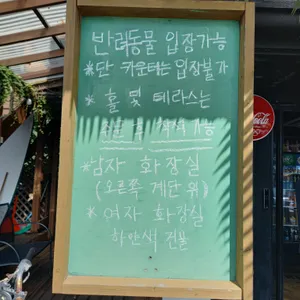 반려동물 입장가능
*단 카운터는 입장불가
* 홀 및 테라스는
가능
*남자 화장실
(오른쪽 계단 위)
* 여자 화장실
하얀색 건물
Coca-Cola